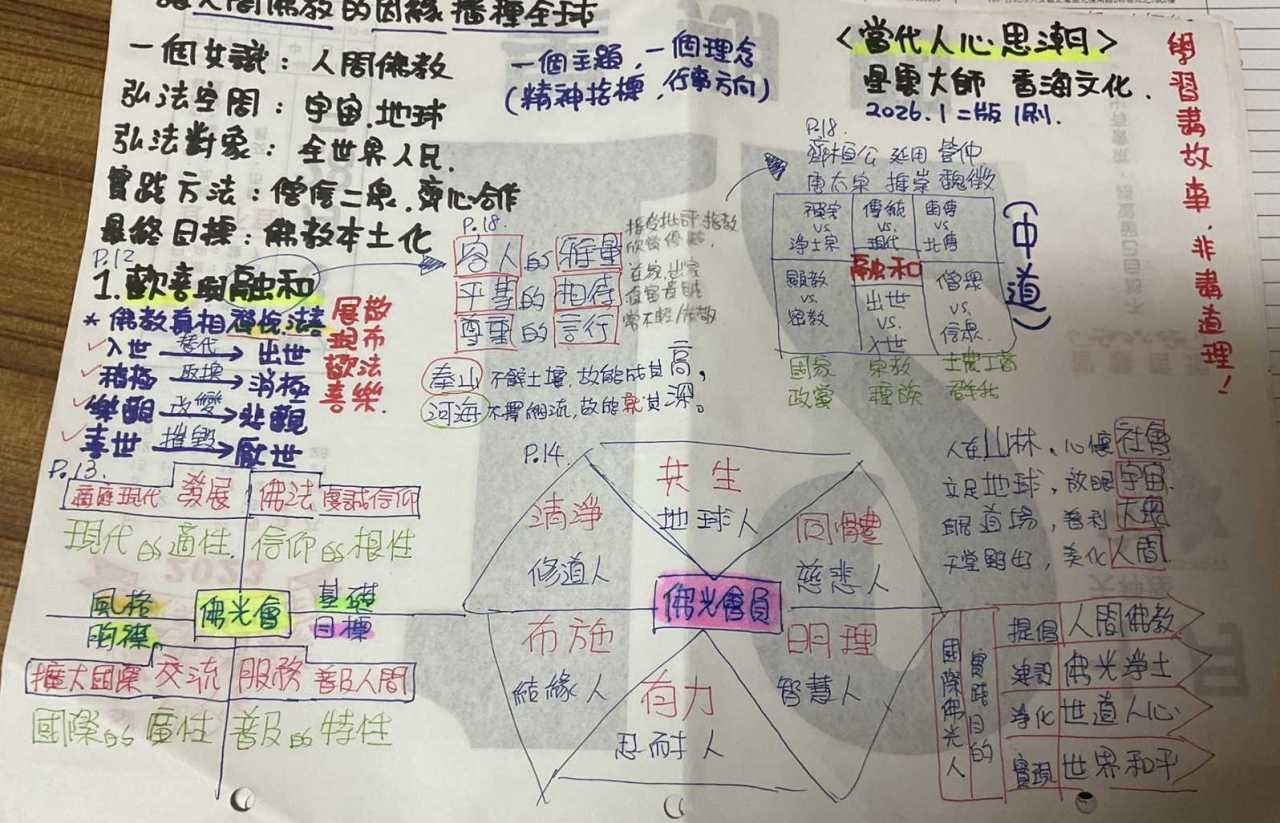 人間佛教的因緣播種全球
一個共識：人間佛教
弘法空間：宇宙.地球
弘法對象：全世界人民.
實踐方法：僧信二眾.齊心合作
最終目標：佛教本土化
一個主題，一個理念
(精神指標，行事方向)
<當代人心思潮>
星雲大師 香海文化.
2026.1 二版 1刷.
學習講故事，非講道理！
P.12
1.歡喜與融和
*佛教真相 禪悅法喜
入世 替代→ 出世
積極 取代→ 消極
樂觀 改變→ 悲觀
喜世 摧毀→ 厭世
展散
現布
歡法
喜樂.
P.18.
容人的雅量
平等的相待
尊重的言行
接受批評.指教
欣賞優點.
泰山不辭土壤，故能成其高，
河海不擇細流，故能就其深。
P.18.
齊桓公 延用 管仲
唐太宗 推崇 魏徵
禪宗 vs. 淨土宗
傳統 vs. 現代
南傳 vs. 北傳
融和
顯教 vs. 密教
出世 vs. 入世
僧眾 vs. 信眾
(中道)
國家 宗教 士農工商
政黨 種族
P.13.
適應現代 發展 佛法 虔誠信仰
現代的適性. 信仰的根性
風格 佛光會 基礎
胸襟 目標
擴大國際 交流 服務 普及人間
國際的廣性 普及的特性
P.14.
共生
地球人
清淨
修道人
同體
慈悲人
佛光會員
布施
結緣人
明理
智慧人
有力
忍耐人
人在山林，心懷社會
立足地球，放眼宇宙.
身居道場，普利大眾
天堂雖好，美化人間
國際佛光人
實踐目的
提倡 人間佛教
建設 佛光淨土
淨化 世道人心
實現 世界和平